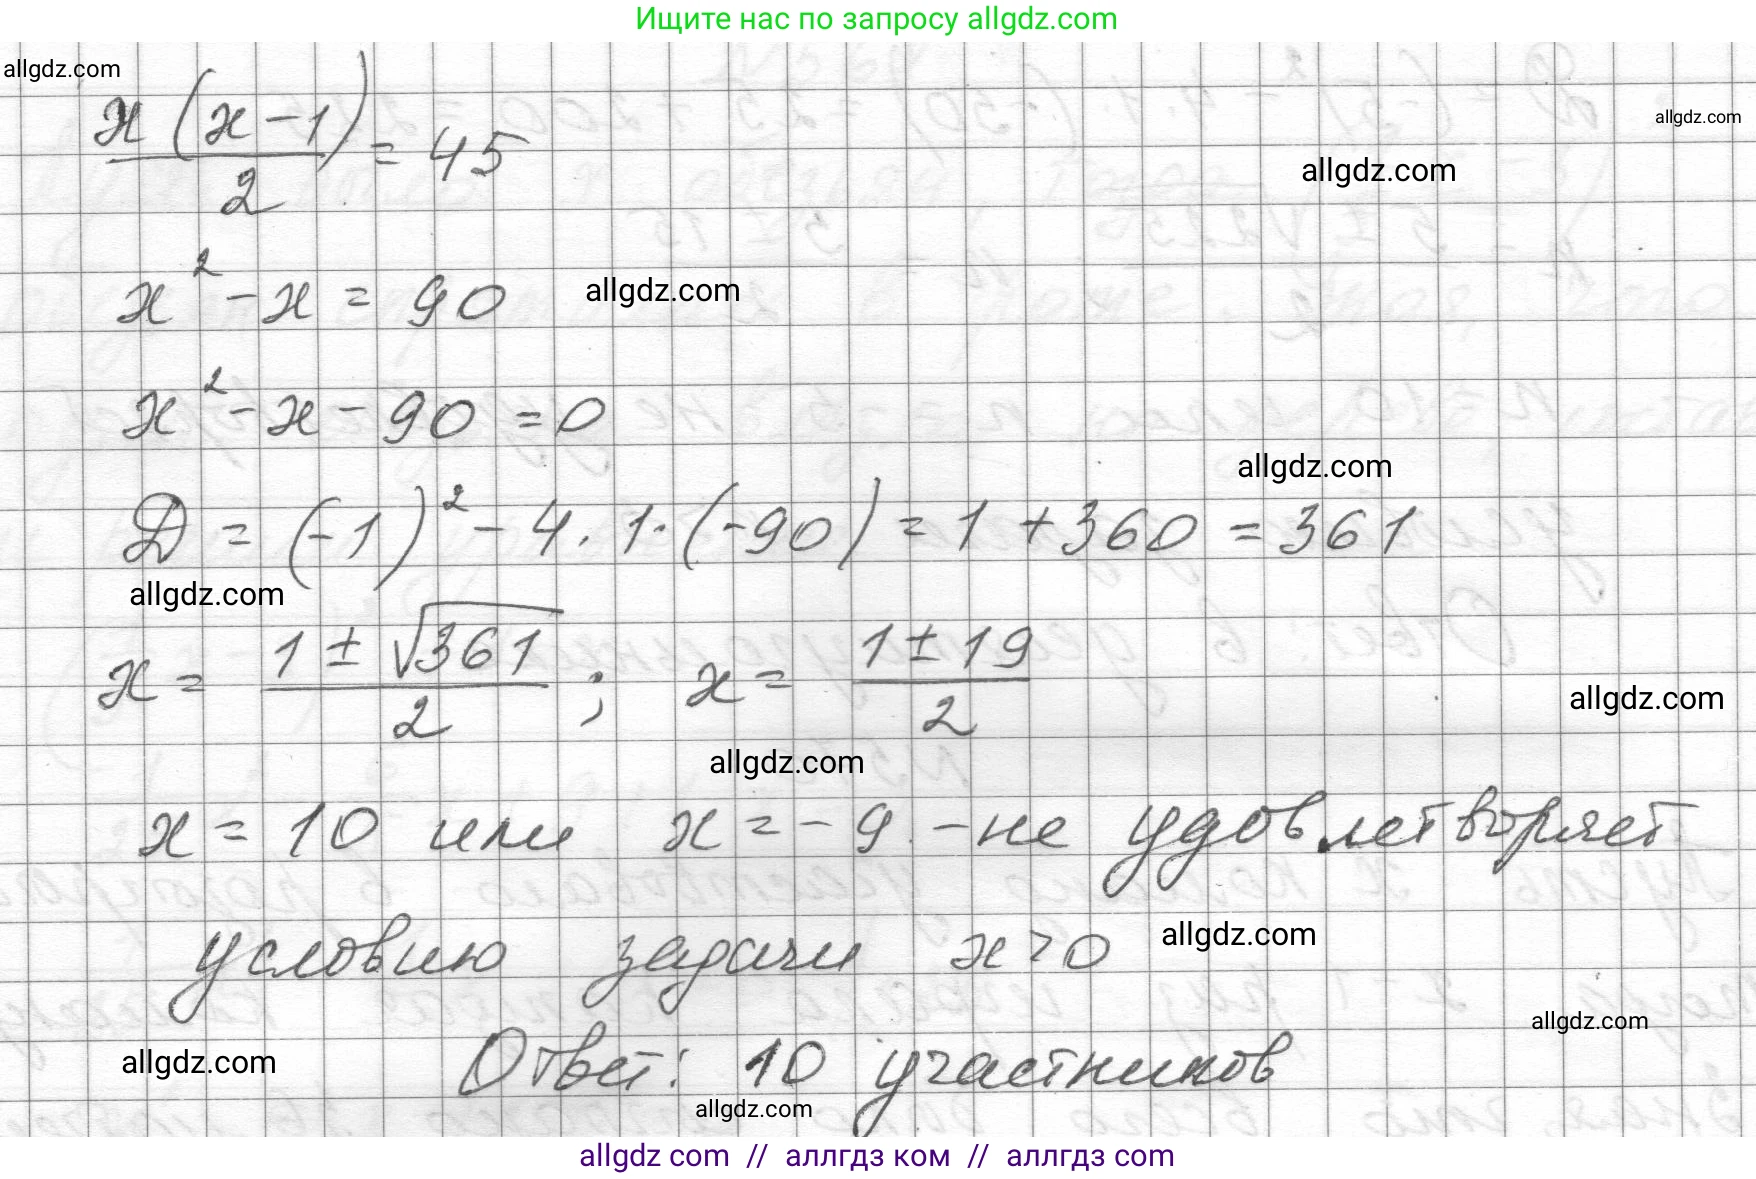 Ищите нас по запросу allgdz.com
allgdz.com
x(x-1)/2 = 45
allgdz.com
allgdz.com
x² - x = 90
allgdz.com
x² - x - 90 = 0
allgdz.com
D = (-1)² - 4 · 1 · (-90) = 1 + 360 = 361
allgdz.com
x = (1 ± √361)/2 ; x = (1 ± 19)/2
allgdz.com
allgdz.com
x = 10 или x = -9 - не удовлетворяет
условию задачи x > 0
allgdz.com
allgdz.com
Ответ: 10 участников
allgdz.com
allgdz.com
allgdz com // аллгдз ком // аллгдз com